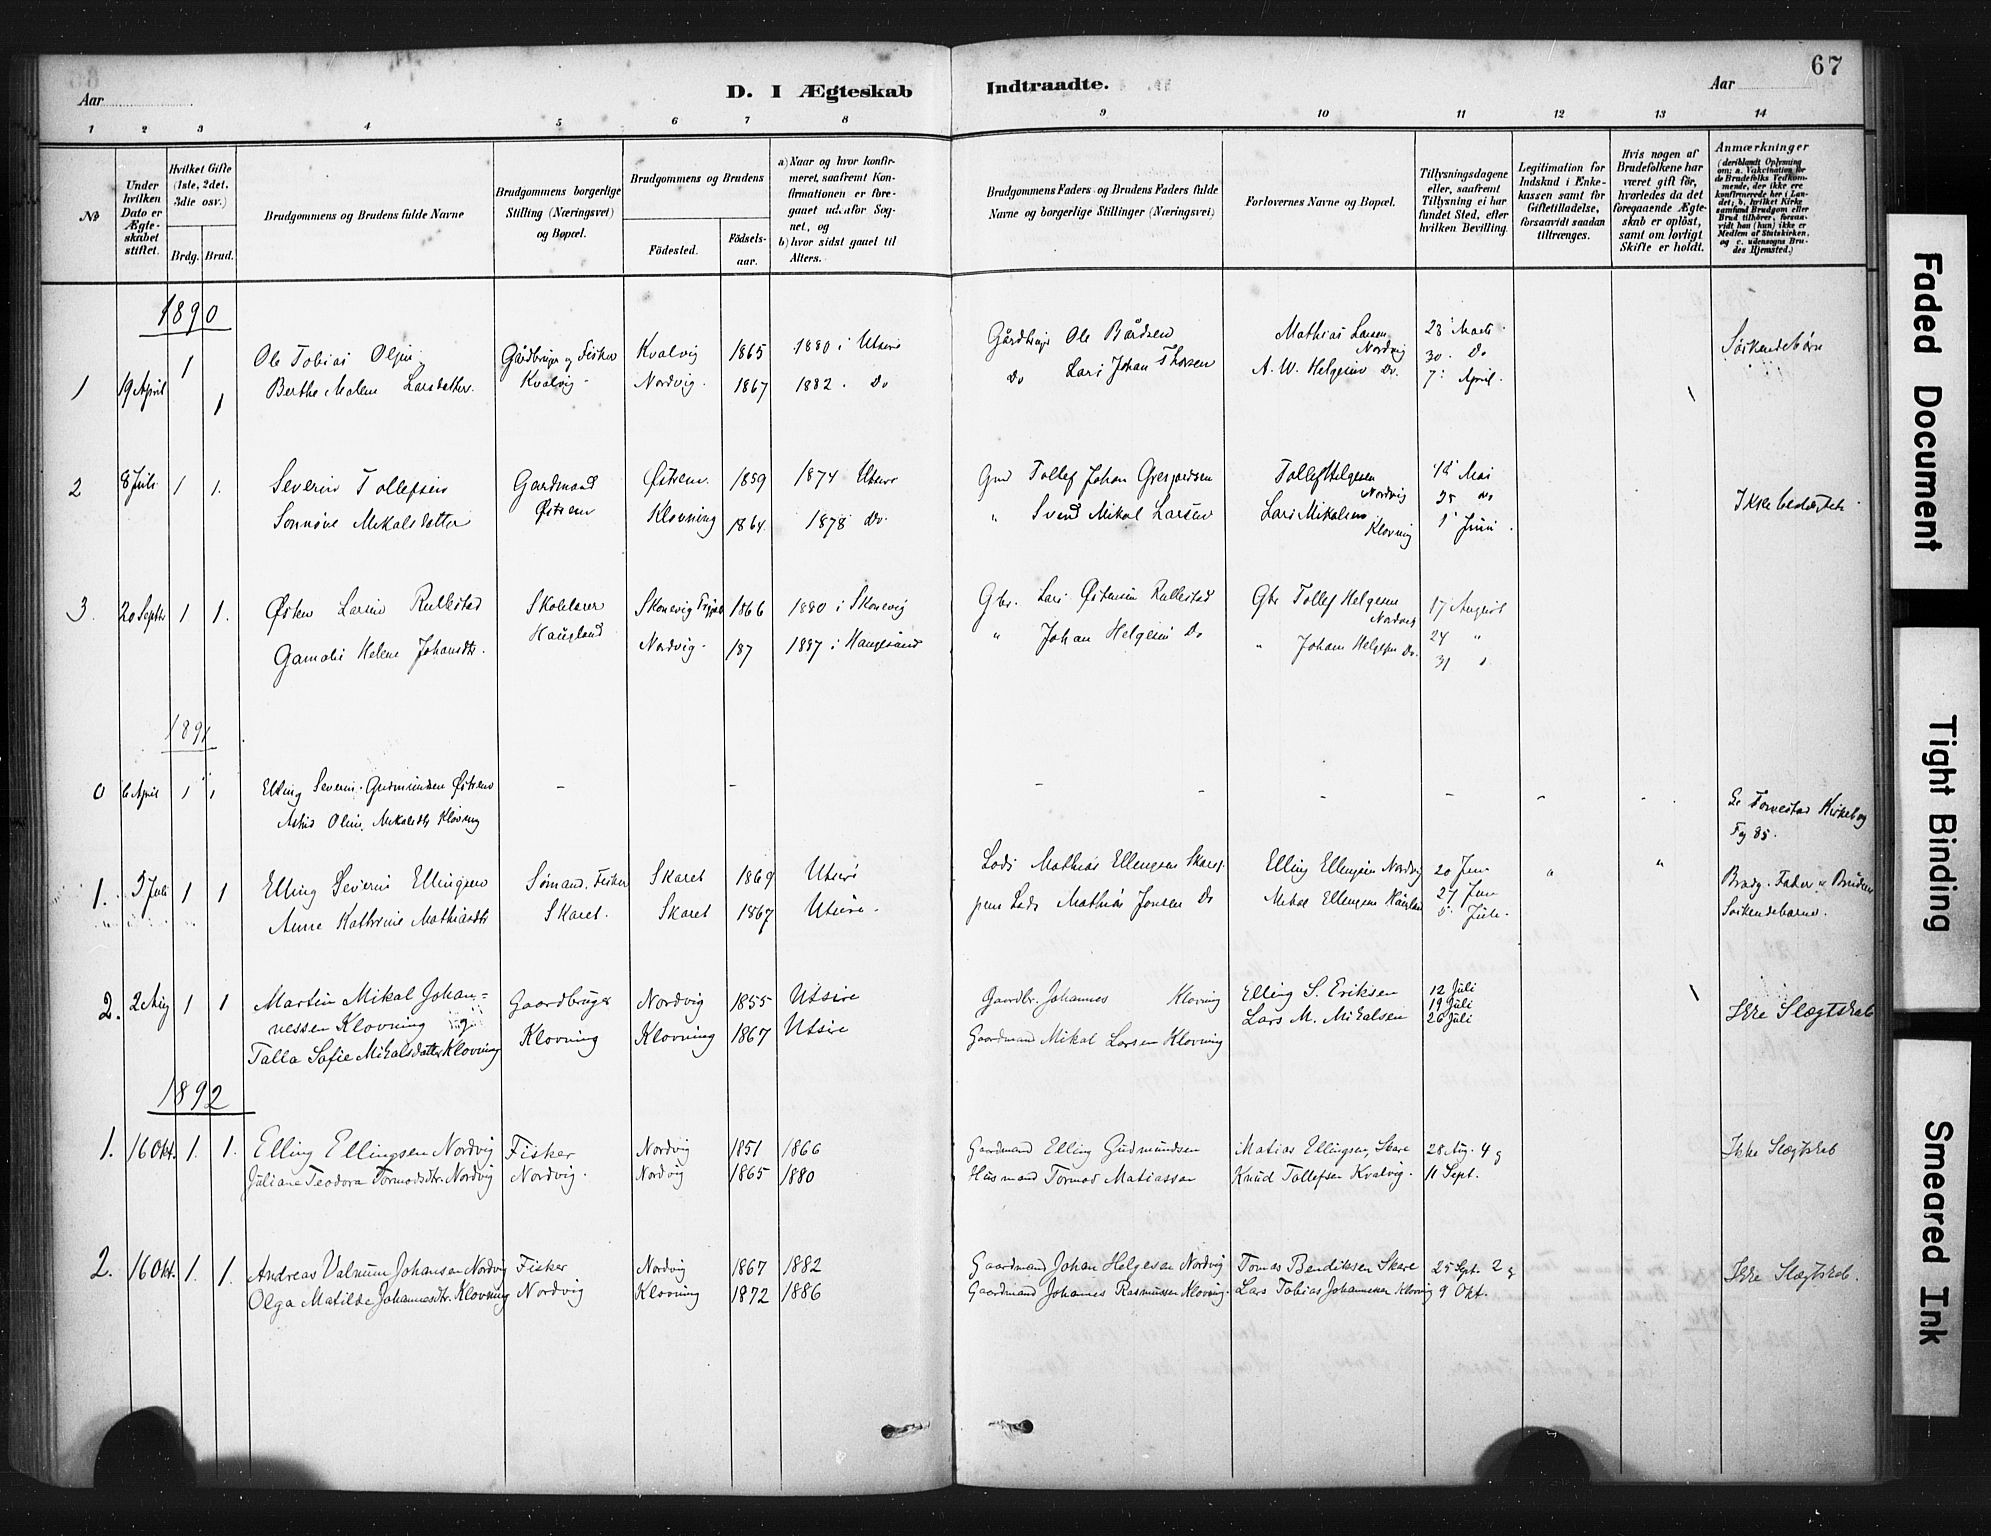 67
Aar
D. I Ægteskab
Indtraadte.
Aar
1 2 3 4 5 6 7 8 9 10 11 12 13 14
No
Under hvilken Dato er Ægteskabet stiftet.
Hvilket Gifte (1ste, 2det, 3die osv.)
Brdg. Brud.
Brudgommens og Brudens fulde Navne
Brudgommens borgerlige Stilling (Næringsvei) og Bopæl.
Brudgommens og Brudens
Fødested.
Fødselsaar.
a) Naar og hvor konfirmeret, saafremt Konfirmationen er foregaaet udenfor Sognet, og
b) hvor sidst gaaet til Alters.
Brudgommens Faders og Brudens Faders fulde Navne og borgerlige Stillinger (Næringsvei)
Forlovernes Navne og Bopæl.
Tillysningsdagene eller, saafremt Tillysning ei har fundet Sted, efter hvilken Bevilling.
Legitimation for Indskud i Enkekassen samt for Giftetilladelse, forsaavidt saadan tiltrænges.
Hvis nogen af Brudefolkene har været gift før, hvorledes da det foregaaende Ægteskab er opløst, samt om lovligt Skifte er holdt.
Anmærkninger
(deriblandt Oplysning om: a. Vakcination for de Brudefolks Vedkommende, der ikke ere konfirmerede her i Landet; b. hvilket Kirkesamfund Brudgom eller Brud tilhører, forsaavidt han (hun) ikke er Medlem af Statskirken, og c. udensogns Brudes Hjemsted.)
1890
1 19 April 1 Ole Tobias Olsen Gårdbruger og Fisker Kvalvig 1865 1880 i Utsire Gårdbruger Ole Bårdsen Mathias Larsen Nordvig 23 Marts Søskendebørn
1 Berthe Malene Larsdatter Kvalvig Nordvig 1867 1882 Do Do Lars Johan Thorsen A. W. Helgesen Do 30 Do
7 April
2 8 Juli 1 1 Severin Tollefsen Gaardmand Østrem 1859 1874 Utsire Gmd Tollef Johan Tollef Helgesen Nordvig 18 Mai Ikke beslægtede
Mikalsdatter Østrem Klovning 1864 1878 Do " Svend Mikal Larsen Lars Mikalsen Klovning 25 Do
1 Juni
3 20 Septbr 1 1 Østen Larsen Rullestad Skolelærer Skonevig 1866 1880 i Skonevig Gbr. Lars Østensen Rullestad Gbr Tollef Helgesen Nordvig 17 August
Helene Johansdtr. Haugland Nordvig 187 1887 i Haugesund " Johan Helgesen Do " Johan Helgesen Do 24 "
31 "
1891
0 6 April 1 1 Elling Severin Gudmundsen Østrem - - - - - - - Se Torvestad Kirkebog
Oline Mikalsdtr Klovning Fg 85.
1. 5 Juli 1 1 Elling Severin Ellingsen Sømand, Fisker Skaret 1869 Utsire Lods Mathias Ellingsen Skaret Elling Ellingsen Nordvig 20 Juni " " Brudg. Fader & Brudens
Anne Kathrine Mathiasdtr Skaret. Skaret 1867 Utsire Lods Mathias Jonsen Do Mikal Ellingsen 27 Juni Søskendebørn.
5 Juli
2. 2 Aug 1 1 Martin Mikal Johan= Gaardbruger Nordvig 1855 Utsire Gaardbr. Johannes Klovning Elling S. Eriksen 12 Juli Ikke Slægtskab
nessen Klovning og Klovning Klovning 1867 Utsire Gaardmand Mikal Larsen Klovning Lars M. Mikalsen 19 Juli
Talla Sofie Mikalsdatter Klovning 26 Juli
1892
1. 16 Okt. 1. 1. Elling Ellingsen Nordvig Fisker Nordvig 1851 1866 Gaardmand Elling Gudmundsen Matias Ellingsen, Skare 28 Aug. 4 og Ikke Slægtskab
Juliane Teodora Tormodsdtr. Nordvig Nordvig. Nordvig 1865 1880 Husmand Tormod Matiassen Knud Tollefsen Kvalvig. 11 Sept.
2. 16 Okt. 1. 1. Andreas Valnum Johansen Nordvig Fisker Nordvig 1867 1882 Gaardmand Johan Helgesen Nordvig Tomas Bendiksen Skare 25 Sept. 2 og Ikke Slægtskab.
Olga Matilde Johannesdtr. Klovning Nordvig Klovning 1872 1886 Gaardmand Johannes Rasmussen Klovning. Lars Tobias Johannessen Klovning 9 Okt.
Faded Document
Tight Binding
Smeared Ink